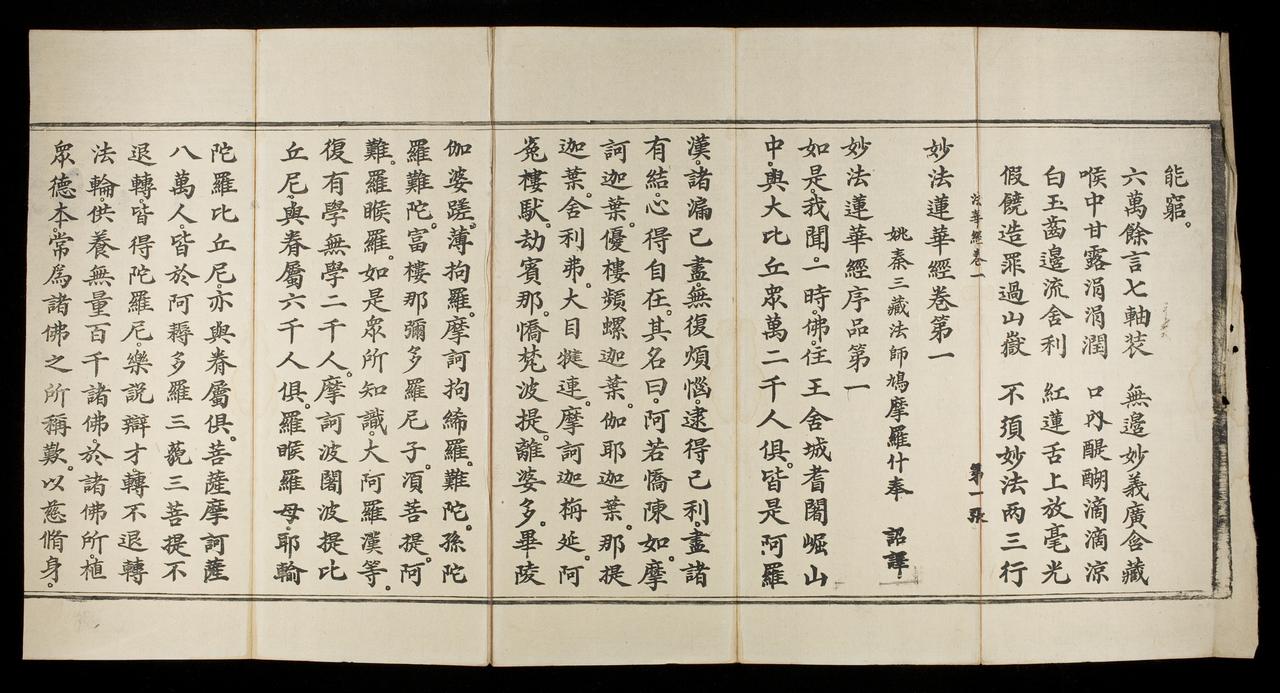 能窮。
六萬餘言七軸裝 無邊妙義廣含藏
喉中甘露涓涓潤 口內醍醐滴滴涼
白玉齒邊流舍利 紅蓮舌上放毫光
假饒造罪過山嶽 不須妙法兩三行
法華經卷一 第一張
妙法蓮華經卷第一
姚秦三藏法師鳩摩羅什奉 詔譯
妙法蓮華經序品第一
如是。我聞。一時。佛。住王舍城耆闍崛山
中。與大比丘眾萬二千人俱。皆是阿羅
漢。諸漏已盡。無復煩惱。逮得己利。盡諸
有結。心得自在。其名曰。阿若憍陳如。摩
訶迦葉。優樓頻螺迦葉。伽耶迦葉。那提
迦葉。舍利弗。大目犍連。摩訶迦栴延。阿
㝹樓馱。劫賓那。憍梵波提。離婆多。畢陵
伽婆蹉。薄拘羅。摩訶拘絺羅。難陀。孫陀
羅難陀。富樓那彌多羅尼子。須菩提。阿
難。羅睺羅。如是眾所知識。大阿羅漢等。
復有學無學二千人。摩訶波闍波提比
丘尼。與眷屬六千人俱。羅睺羅母。耶輸
陀羅比丘尼。亦與眷屬俱。菩薩摩訶薩
八萬人。皆於阿耨多羅三藐三菩提不
退轉。皆得陀羅尼。樂說辯才。轉不退轉
法輪。供養無量百千諸佛。於諸佛所。植
眾德本。常為諸佛之所稱歎。以慈脩身。